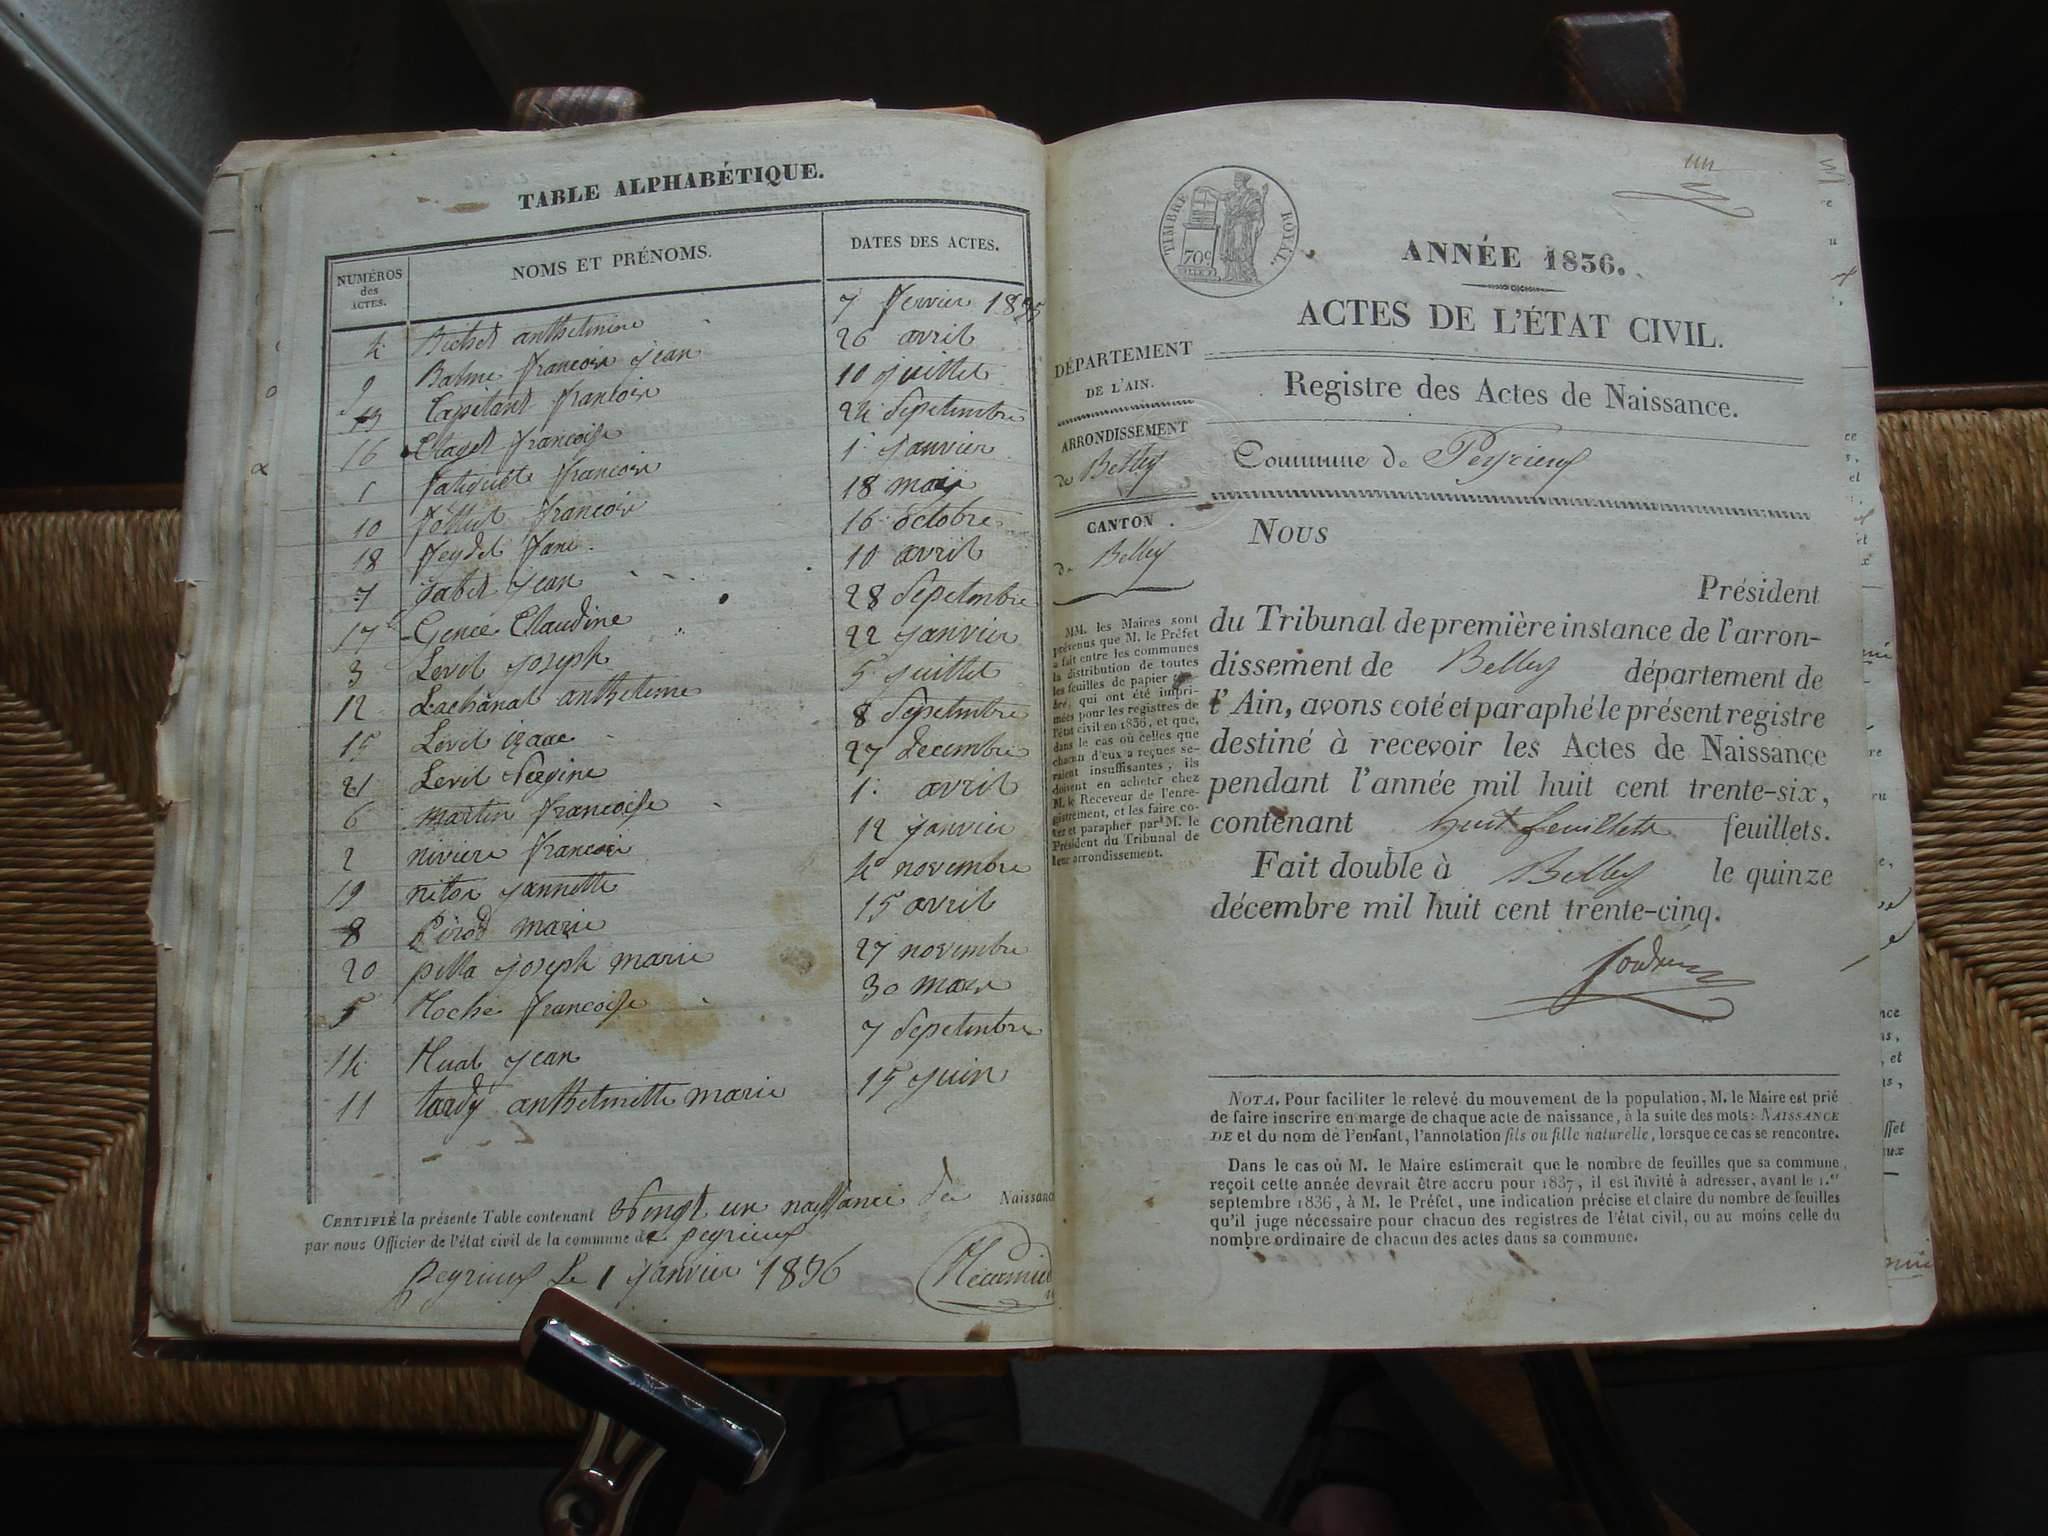 TABLE ALPHABÉTIQUE.
NUMÉROS des ACTES. NOMS ET PRÉNOMS. DATES DES ACTES.
4 anthelmine 7 fevrier 1835
9 Balme francois jean 26 avril
13 Capitant francois 10 juillet
16 Claget francoise 24 Septembre
1 francois 1. janvier
10 francois 18 mai
18 feydel 16 octobre
7 gabet jean 10 avril
17 Genee Claudine 28 Septembre
3 Levit joseph 22 janvier
12 Lachanal anthelme 5 juillet
15 Levit izaac 8 Septembre
21 Levit 27 decembre
6 martin francoise 1. avril
2 niviere francois 12 janvier
19 niton jannette 4 novembre
8 Pirod marie 15 avril
20 pilla joseph marie 27 novembre
5 Roche francoise 30 mars
14 Ruat jean 7 Septembre
11 tardy anthelmette marie 15 juin
CERTIFIÉ la présente Table contenant Vingt un naissance de Naissanc
par nous Officier de l'état civil de la commune de peyrieux
Peyrieux Le 1 janvier 1836
un
TIMBRE ROYAL.
70c
ANNÉE 1836.
ACTES DE L'ÉTAT CIVIL.
Registre des Actes de Naissance.
Commune de Peyrieux
DÉPARTEMENT
DE L'AIN.
ARRONDISSEMENT
de Belley
CANTON
de Belley
MM. les Maires sont
prévenus que M. le Préfet
a fait entre les communes
la distribution de toutes
les feuilles de papier
qui ont été impri-
mées pour les registres de
l'état civil en 1836, et que,
dans le cas où celles que
chacun d'eux a reçues se-
raient insuffisantes, ils
doivent en acheter chez
M. le Receveur de l'enre-
gistrement, et les faire co-
ter et parapher par M. le
Président du Tribunal de
leur arrondissement.
Nous
Président
du Tribunal de première instance de l'arron-
dissement de Belley département de
l'Ain, avons coté et paraphé le présent registre
destiné à recevoir les Actes de Naissance
pendant l'année mil huit cent trente-six,
contenant huit feuillets feuillets.
Fait double à Belley le quinze
décembre mil huit cent trente-cinq.
NOTA. Pour faciliter le relevé du mouvement de la population, M. le Maire est prié
de faire inscrire en marge de chaque acte de naissance, à la suite des mots: NAISSANCE
DE et du nom de l'enfant, l'annotation fils ou fille naturelle, lorsque ce cas se rencontre.
Dans le cas où M. le Maire estimerait que le nombre de feuilles que sa commune
reçoit cette année devrait être accru pour 1837, il est invité à adresser, avant le 1.er
septembre 1836, à M. le Préfet, une indication précise et claire du nombre de feuilles
qu'il juge nécessaire pour chacun des registres de l'état civil, ou au moins celle du
nombre ordinaire de chacun des actes dans sa commune.